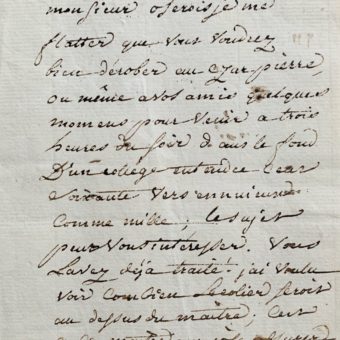 monsieur oserois je me
flatter que vous voudrez
bien dérober au czar pierre,
ou même a vos amis quelques
momens pour venir a trois
heures du soir dans le fond
D'un college entendre cent
soixante vers ennuieux
comme mille; le sujet
peut vous interesser. Vous
L'avez déja traité: j'ai voulu
voir combien l'ecolier seroit
au dessus du maître; c'est